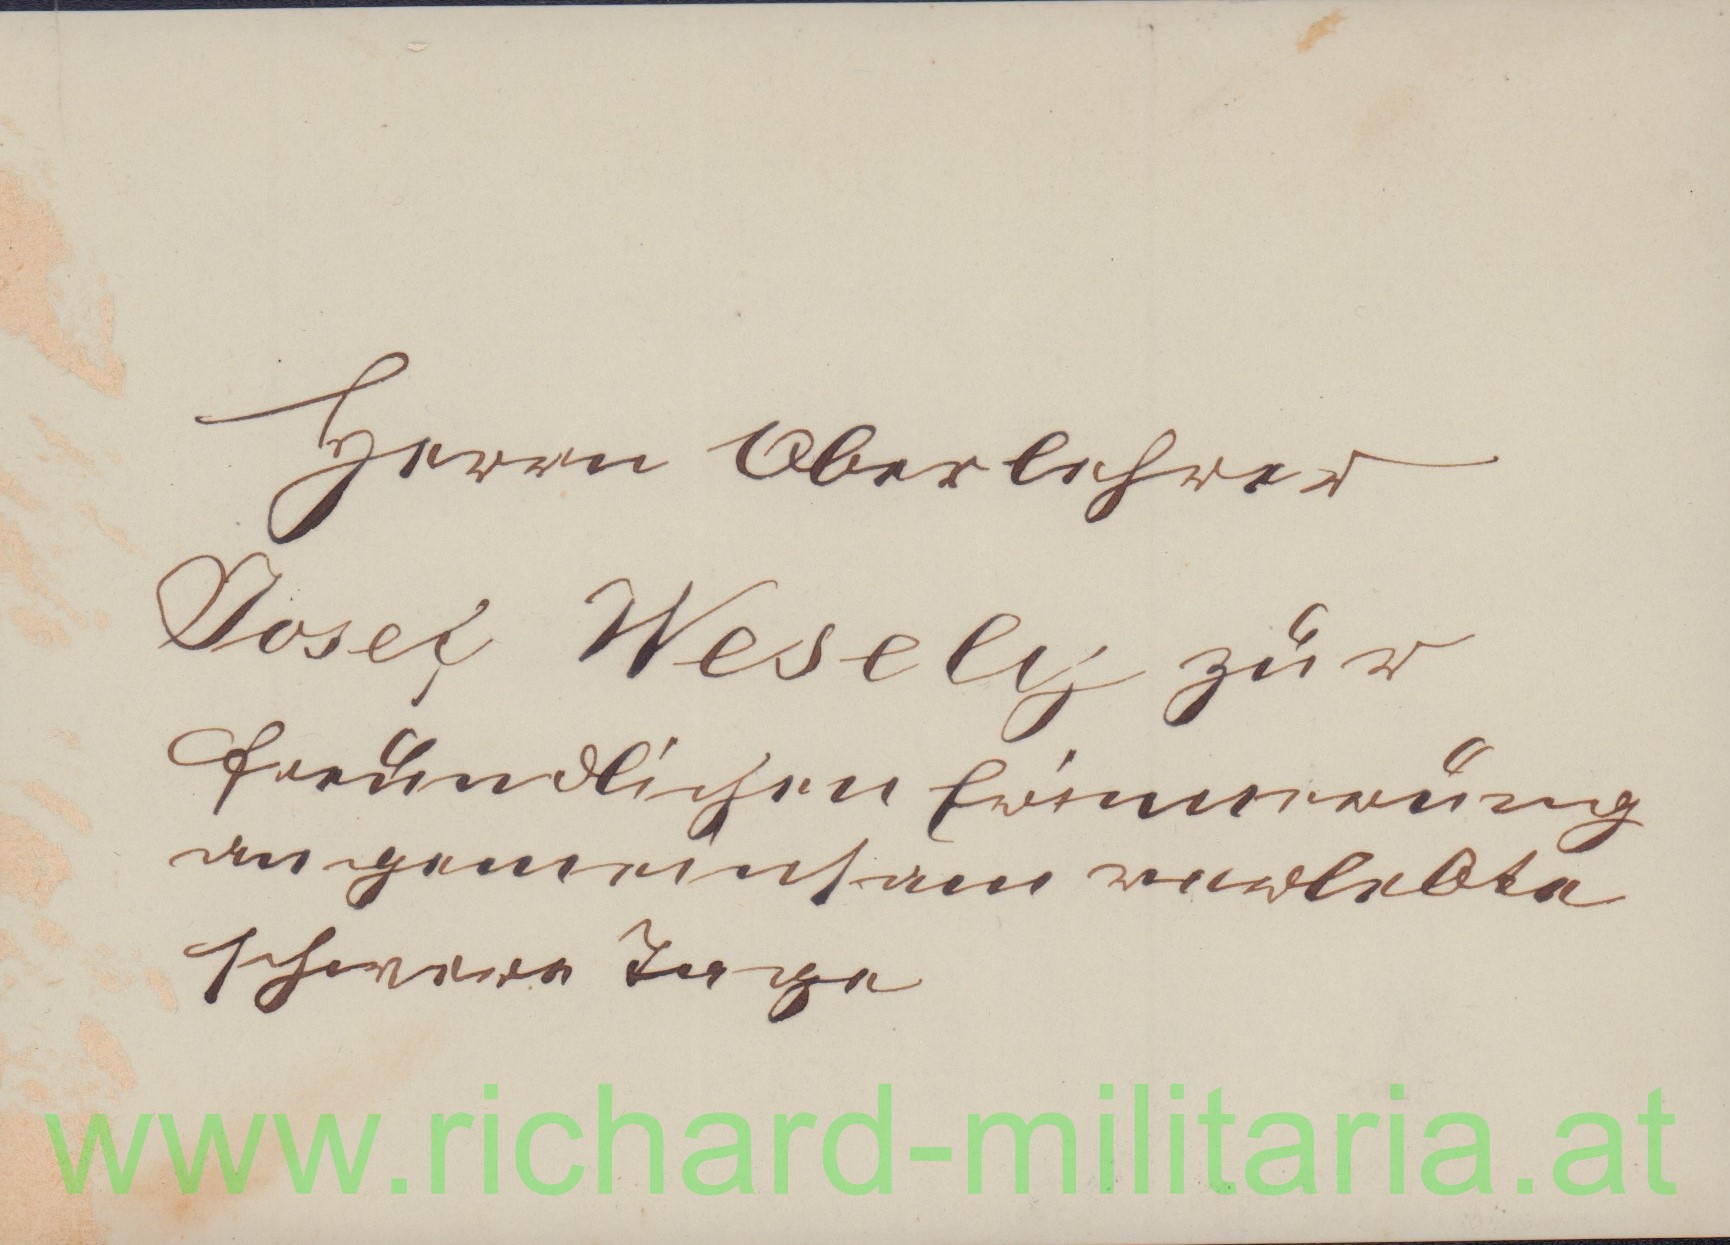 Herrn Oberlehrer
Josef Wesely zur
freundlichen Erinnerung
an gemeinsam verlebte
schwere Tage
www.richard-militaria.at